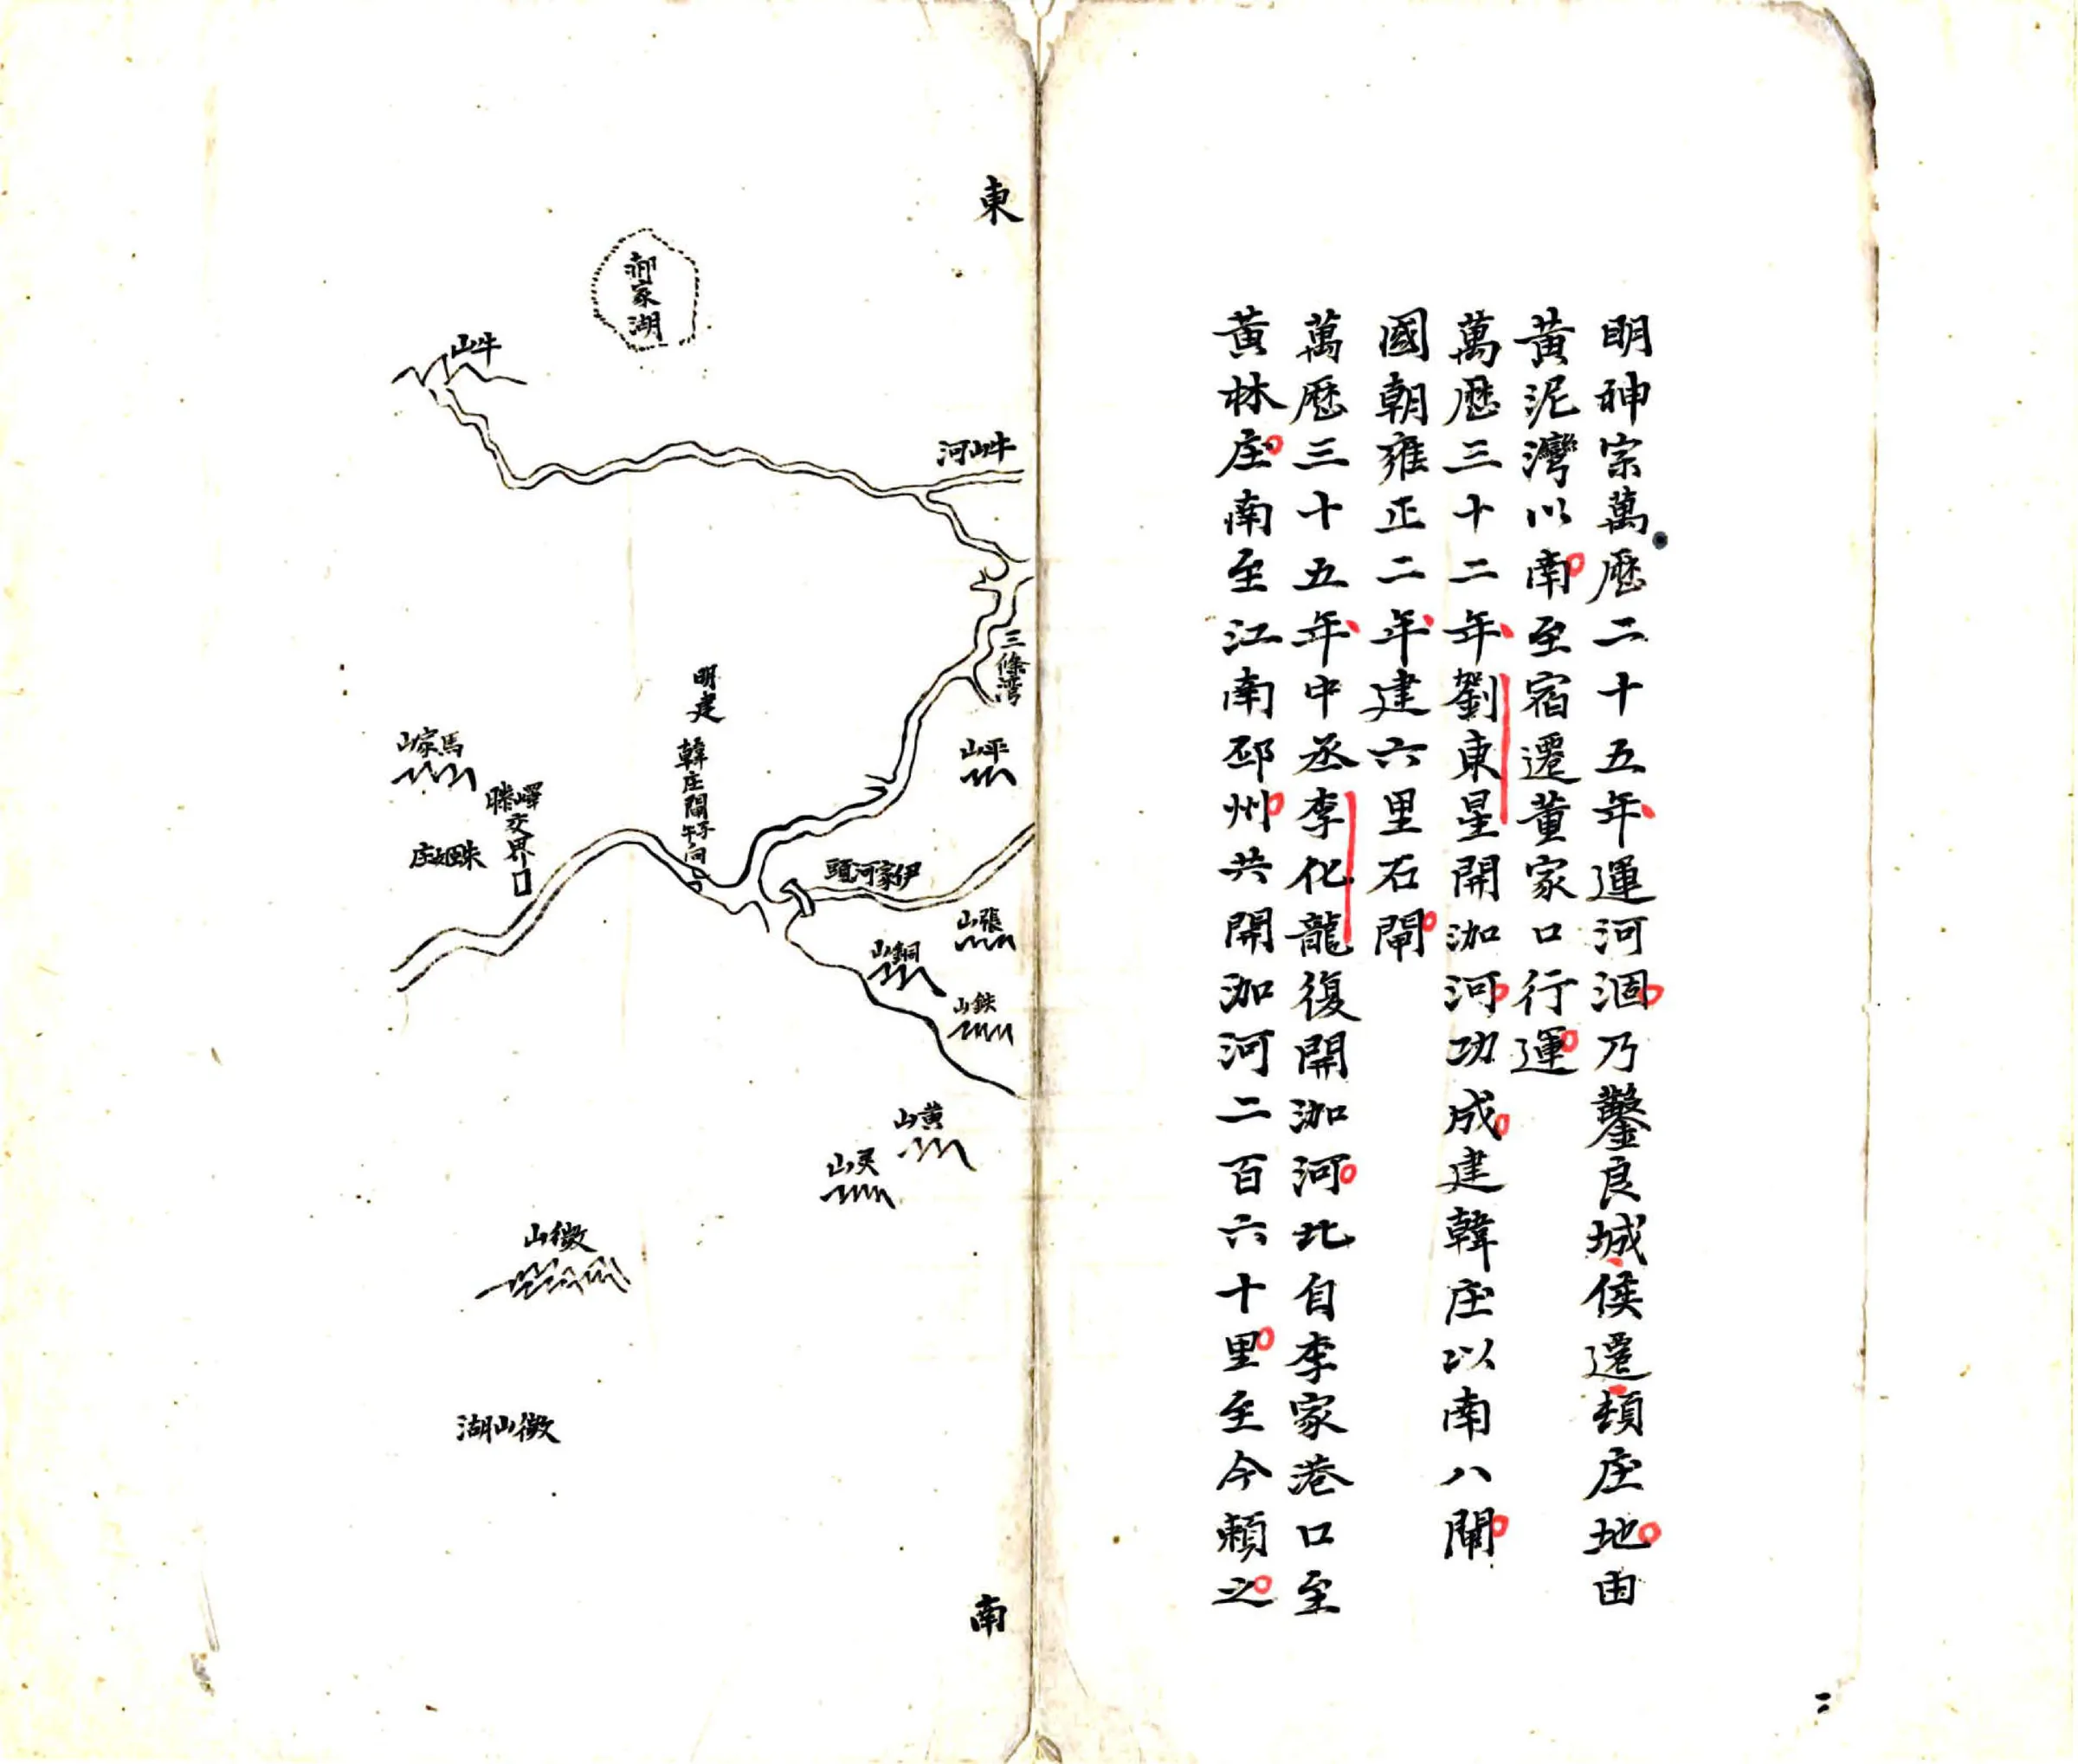 明神宗萬歷二十五年運河涸乃鑿良城侯遷頓庄地由
黃泥灣以南至宿遷董家口行運
萬歷三十二年劉東星開泇河功成建韓庄以南八閘
國朝雍正二年建六里石閘
萬歷三十五年中丞李化龍復開泇河北自李家港口至
黃林庄南至江南邳州共開泇河二百六十里至今賴之
二
東
南
家湖
牛山
牛山河
三條湾
平山
伊家河頭
張山
銅山
鉄山
黃山
灵山
明建
韓庄閘子午向
微山
微山湖
嶧滕交界
朱姬庄
馬家山